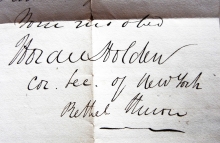 Your mo obed
Horace Holden
Cor. Sec. of New York
Bethel Union